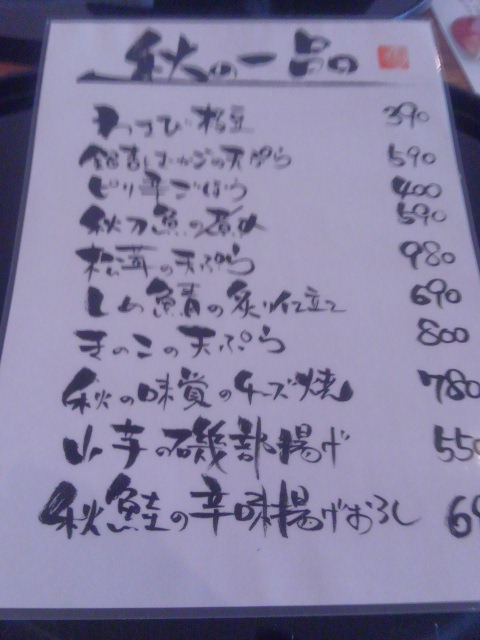 秋の一品の
わさび 390
銀杏 の天ぷら 590
ピリ辛ごぼう 400
秋刀魚の煮 590
松茸の天ぷら 980
しめ鯖の炙り仕立て 690
きのこの天ぷら 800
秋の味覚のチーズ焼 780
山芋の磯部揚げ 550
秋鮭の辛味揚げおろし 6